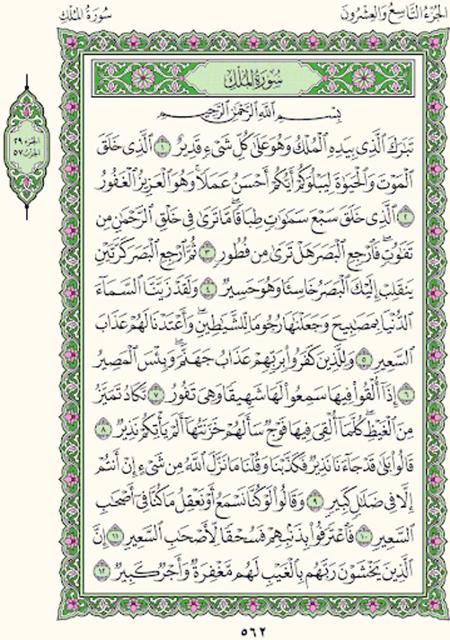 الجزء التاسع والعشرون
سورة الملك
سُورَةُ المُلْكِ
بِسْمِ اللَّهِ الرَّحْمَٰنِ الرَّحِيمِ
الجزء ٢٩
الحزب ٥٧
تَبَٰرَكَ الَّذِى بِيَدِهِ الْمُلْكُ وَهُوَ عَلَىٰ كُلِّ شَىْءٍ قَدِيرٌ ١ الَّذِى خَلَقَ
الْمَوْتَ وَالْحَيَوٰةَ لِيَبْلُوَكُمْ أَيُّكُمْ أَحْسَنُ عَمَلًا وَهُوَ الْعَزِيزُ الْغَفُورُ
٢ الَّذِى خَلَقَ سَبْعَ سَمَٰوَٰتٍ طِبَاقًا مَّا تَرَىٰ فِى خَلْقِ الرَّحْمَٰنِ مِن
تَفَٰوُتٍ فَارْجِعِ الْبَصَرَ هَلْ تَرَىٰ مِن فُطُورٍ ٣ ثُمَّ ارْجِعِ الْبَصَرَ كَرَّتَيْنِ
يَنقَلِبْ إِلَيْكَ الْبَصَرُ خَاسِئًا وَهُوَ حَسِيرٌ ٤ وَلَقَدْ زَيَّنَّا السَّمَآءَ
الدُّنْيَا بِمَصَٰبِيحَ وَجَعَلْنَٰهَا رُجُومًا لِّلشَّيَٰطِينِ وَأَعْتَدْنَا لَهُمْ عَذَابَ
السَّعِيرِ ٥ وَلِلَّذِينَ كَفَرُوا بِرَبِّهِمْ عَذَابُ جَهَنَّمَ وَبِئْسَ الْمَصِيرُ
٦ إِذَآ أُلْقُوا فِيهَا سَمِعُوا لَهَا شَهِيقًا وَهِىَ تَفُورُ ٧ تَكَادُ تَمَيَّزُ
مِنَ الْغَيْظِ كُلَّمَآ أُلْقِىَ فِيهَا فَوْجٌ سَأَلَهُمْ خَزَنَتُهَآ أَلَمْ يَأْتِكُمْ نَذِيرٌ ٨
قَالُوا بَلَىٰ قَدْ جَآءَنَا نَذِيرٌ فَكَذَّبْنَا وَقُلْنَا مَا نَزَّلَ اللَّهُ مِن شَىْءٍ إِنْ أَنتُمْ
إِلَّا فِى ضَلَٰلٍ كَبِيرٍ ٩ وَقَالُوا لَوْ كُنَّا نَسْمَعُ أَوْ نَعْقِلُ مَا كُنَّا فِىٓ أَصْحَٰبِ
السَّعِيرِ ١٠ فَاعْتَرَفُوا بِذَنبِهِمْ فَسُحْقًا لِّأَصْحَٰبِ السَّعِيرِ ١١ إِنَّ
الَّذِينَ يَخْشَوْنَ رَبَّهُم بِالْغَيْبِ لَهُم مَّغْفِرَةٌ وَأَجْرٌ كَبِيرٌ ١٢
٥٦٢